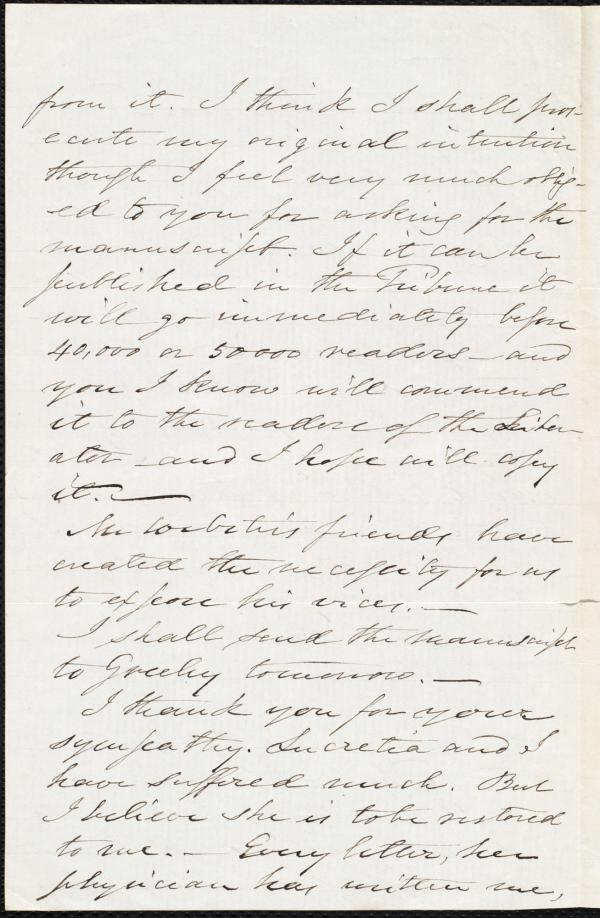 from it. I think I shall pros-
ecute my original intention
though I feel very much oblig-
ed to you for asking for the
manuscript. If it can be
published in the Tribune it
will go immediately before
40,000 or 50000 readers - and
you I know will commend
it to the readers of the Liber-
ator - and I hope will copy
it. —
Mr Webster's friends have
created the necessity for us
to expose his vices. —
I shall send the manuscript
to Greeley tomorrow. —
I thank you for your
sympathy. Lucretia and I
have suffered much. But
I believe she is to be restored
to me. — Every letter, her
physician has written me,